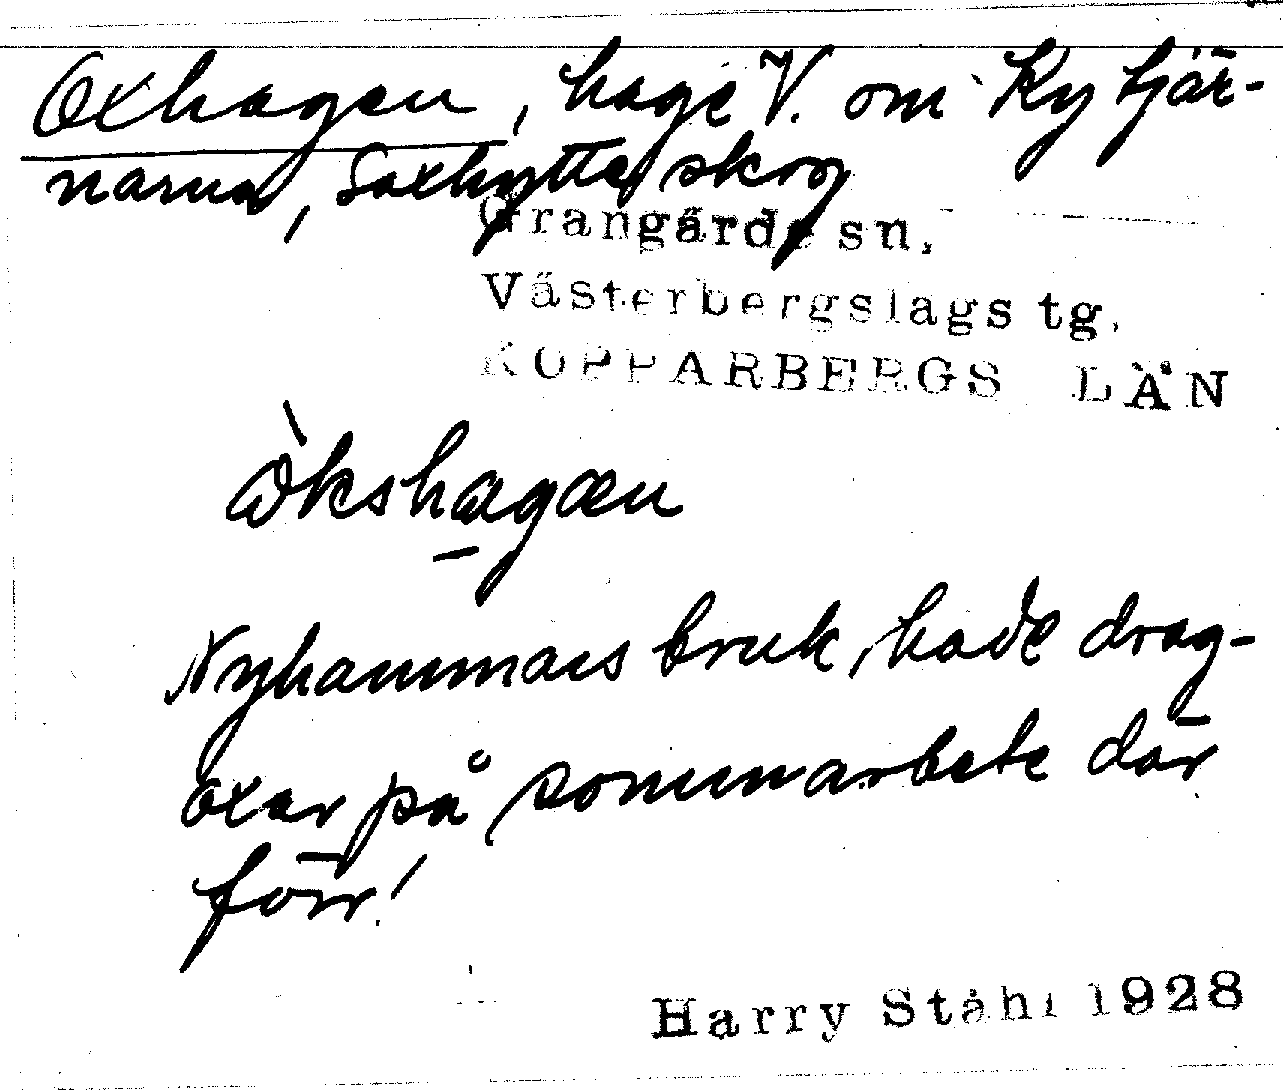 Oxhagen, hage V. om Ky tjär-
narna, Saxhytte skog
Grangärde sn.
Västerbergslags tg.
KOPPARBERGS LÄN
òkshagæn
Nyhammars bruk hade drag-
oxar på sommarbete där
förr!
Harry Ståhl 1928